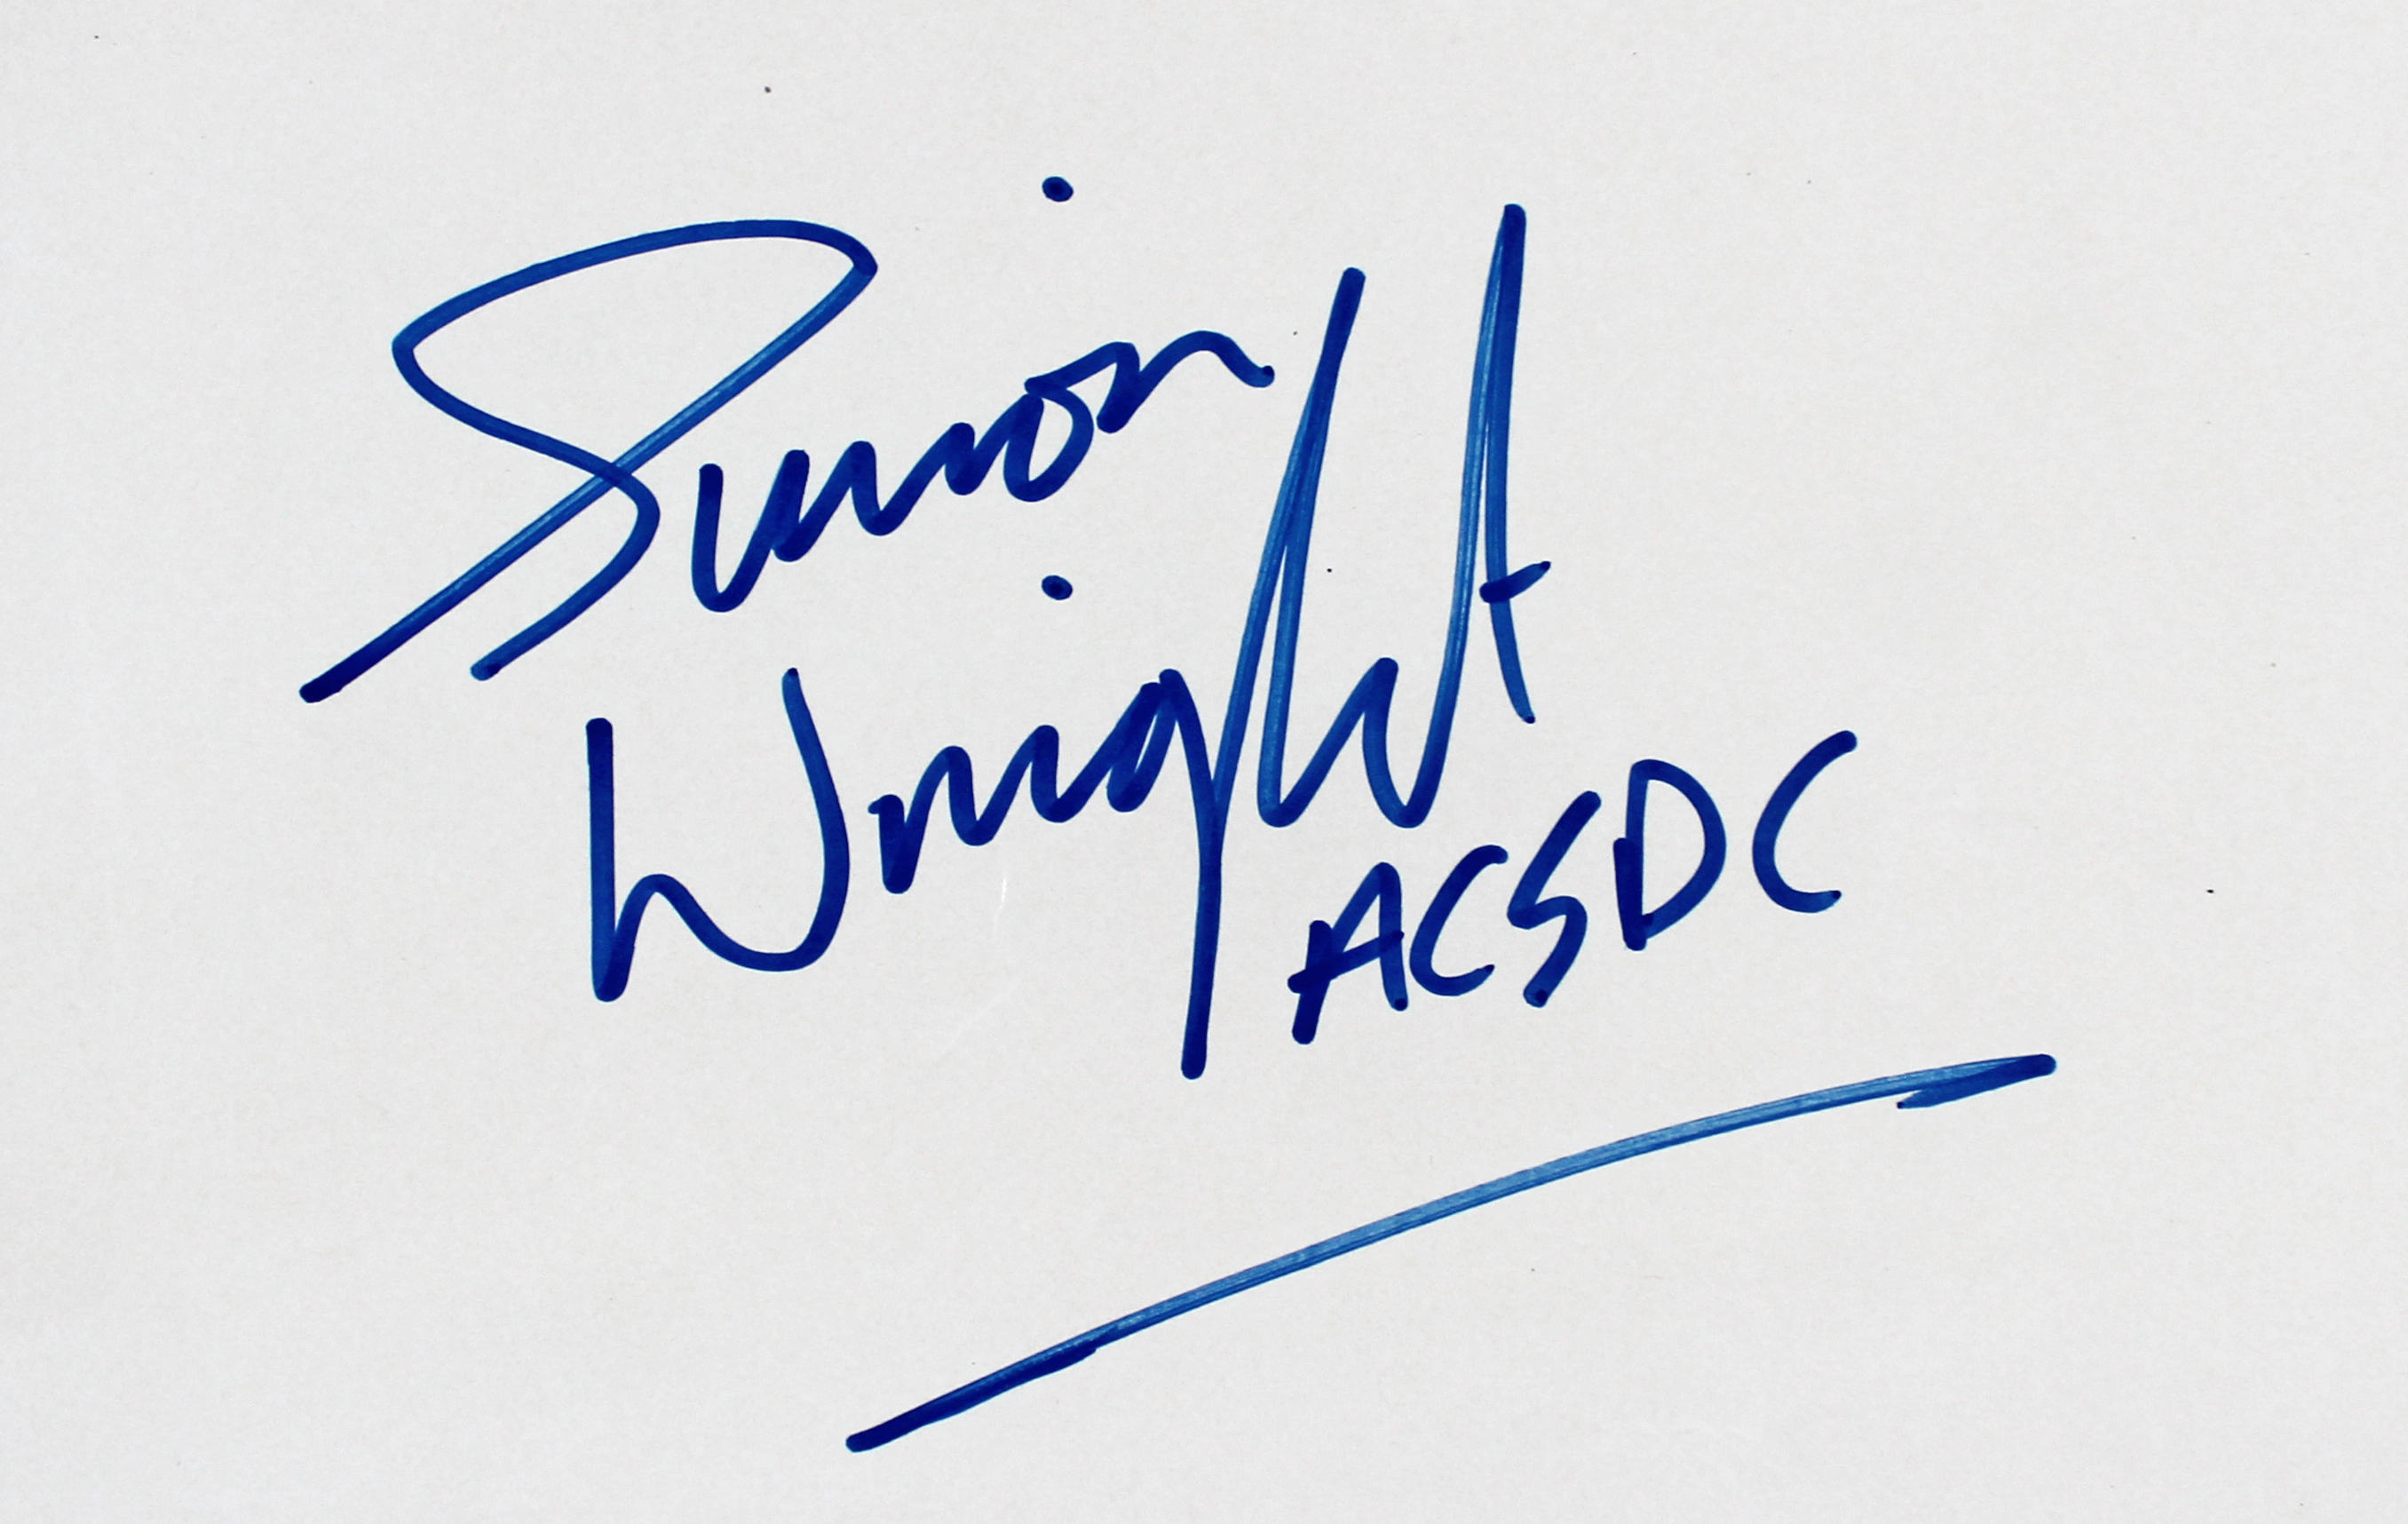 Simon
Wright
ACSDC